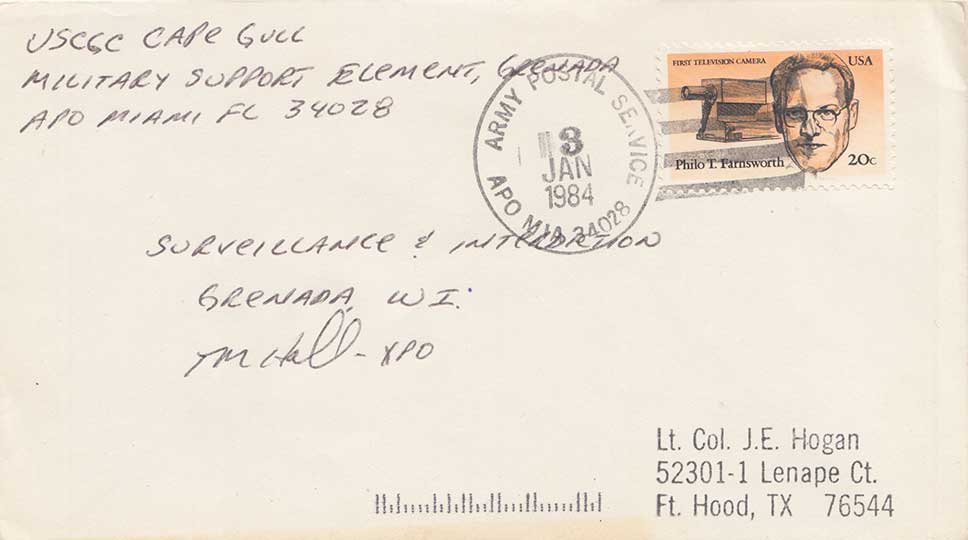 USCGC CAPE GULL
MILITARY SUPPORT ELEMENT, GRENADA
APO MIAMI FL 34028
ARMY POSTAL SERVICE
3
JAN
1984
APO MIA 34028
FIRST TELEVISION CAMERA
USA
Philo T. Farnsworth
20c
SURVEILLANCE & INTERDICTION
GRENADA, W I.
TM Hall - XPO
Lt. Col. J.E. Hogan
52301-1 Lenape Ct.
Ft. Hood, TX 76544